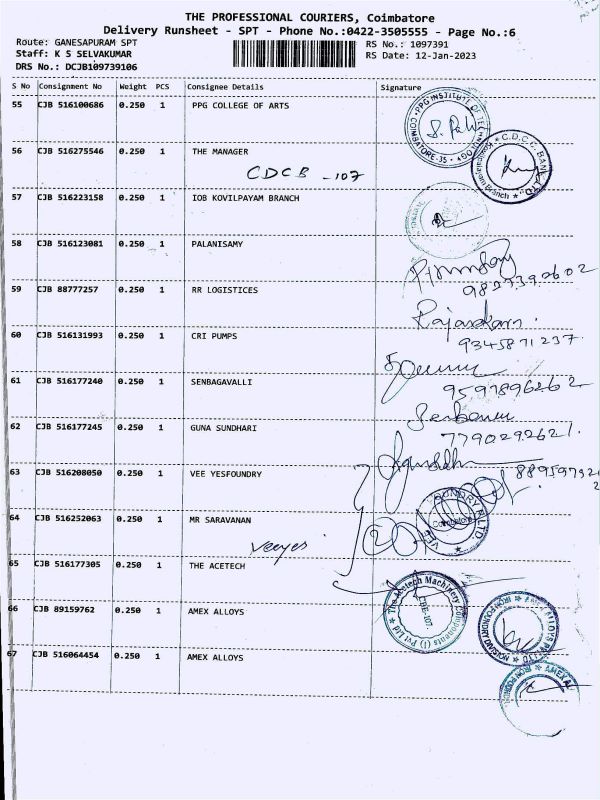 THE PROFESSIONAL COURIERS, Coimbatore
Delivery Runsheet - SPT - Phone No.:0422-3505555 - Page No.:6
Route: GANESAPURAM SPT
Staff: K S SELVAKUMAR
DRS No.: DCJB109739106
RS No.: 1097391
RS Date: 12-Jan-2023
S No Consignment No Weight PCS Consignee Details Signature
55 CJB 516100686 0.250 1 PPG COLLEGE OF ARTS
56 CJB 516275546 0.250 1 THE MANAGER
CDCB -107
57 CJB 516223158 0.250 1 IOB KOVILPAYAM BRANCH
58 CJB 516123081 0.250 1 PALANISAMY
59 CJB 88777257 0.250 1 RR LOGISTICES
Rajasekaran.
9345871237.
60 CJB 516131993 0.250 1 CRI PUMPS
9597896262
61 CJB 516177240 0.250 1 SENBAGAVALLI
7790292621.
62 CJB 516177245 0.250 1 GUNA SUNDHARI
63 CJB 516208050 0.250 1 VEE YESFOUNDRY
64 CJB 516252063 0.250 1 MR SARAVANAN
veeyes
65 CJB 516177305 0.250 1 THE ACETECH
The Acetech Machinery Components (I) Pvt Ltd
CBE-107.
66 CJB 89159762 0.250 1 AMEX ALLOYS
67 CJB 516064454 0.250 1 AMEX ALLOYS